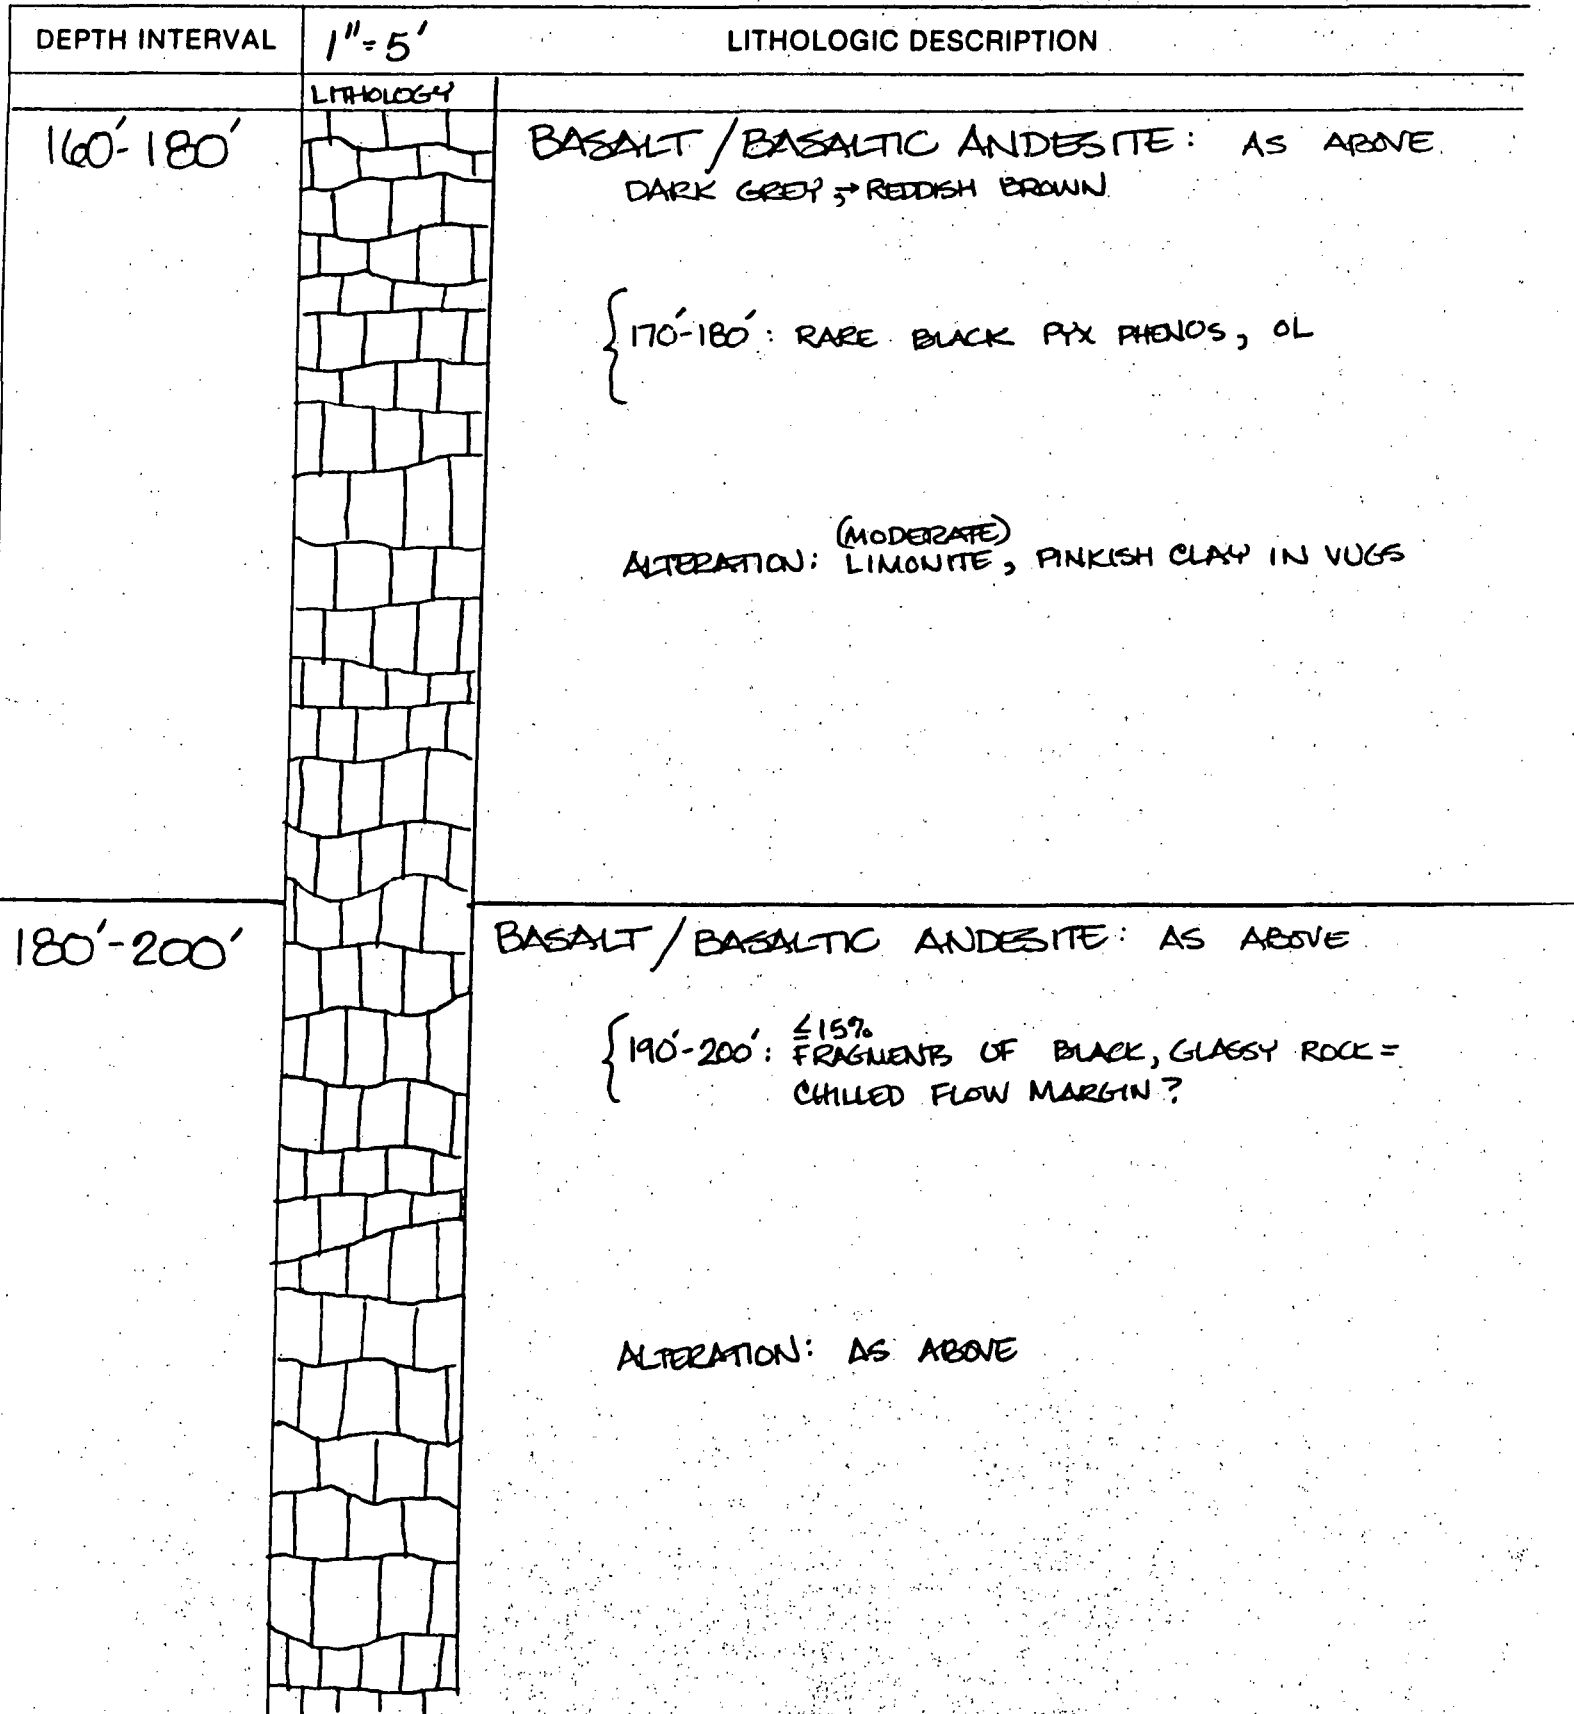 DEPTH INTERVAL 1"=5' LITHOLOGIC DESCRIPTION
LITHOLOGY
160'-180' BASALT / BASALTIC ANDESITE: AS ABOVE
DARK GREY → REDDISH BROWN
170'-180': RARE BLACK PYX PHENOS, OL
(MODERATE)
ALTERATION: LIMONITE, PINKISH CLAY IN VUGS
180'-200' BASALT / BASALTIC ANDESITE: AS ABOVE
≤15%
190'-200': FRAGMENTS OF BLACK, GLASSY ROCK =
CHILLED FLOW MARGIN?
ALTERATION: AS ABOVE